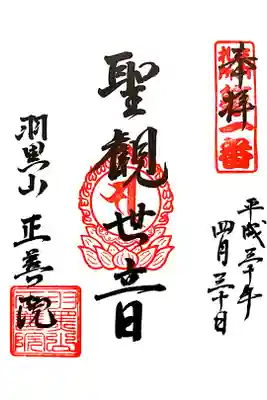 奉拝
第一番
平成三十年
四月三十日
聖観世音
羽黒山 正善院